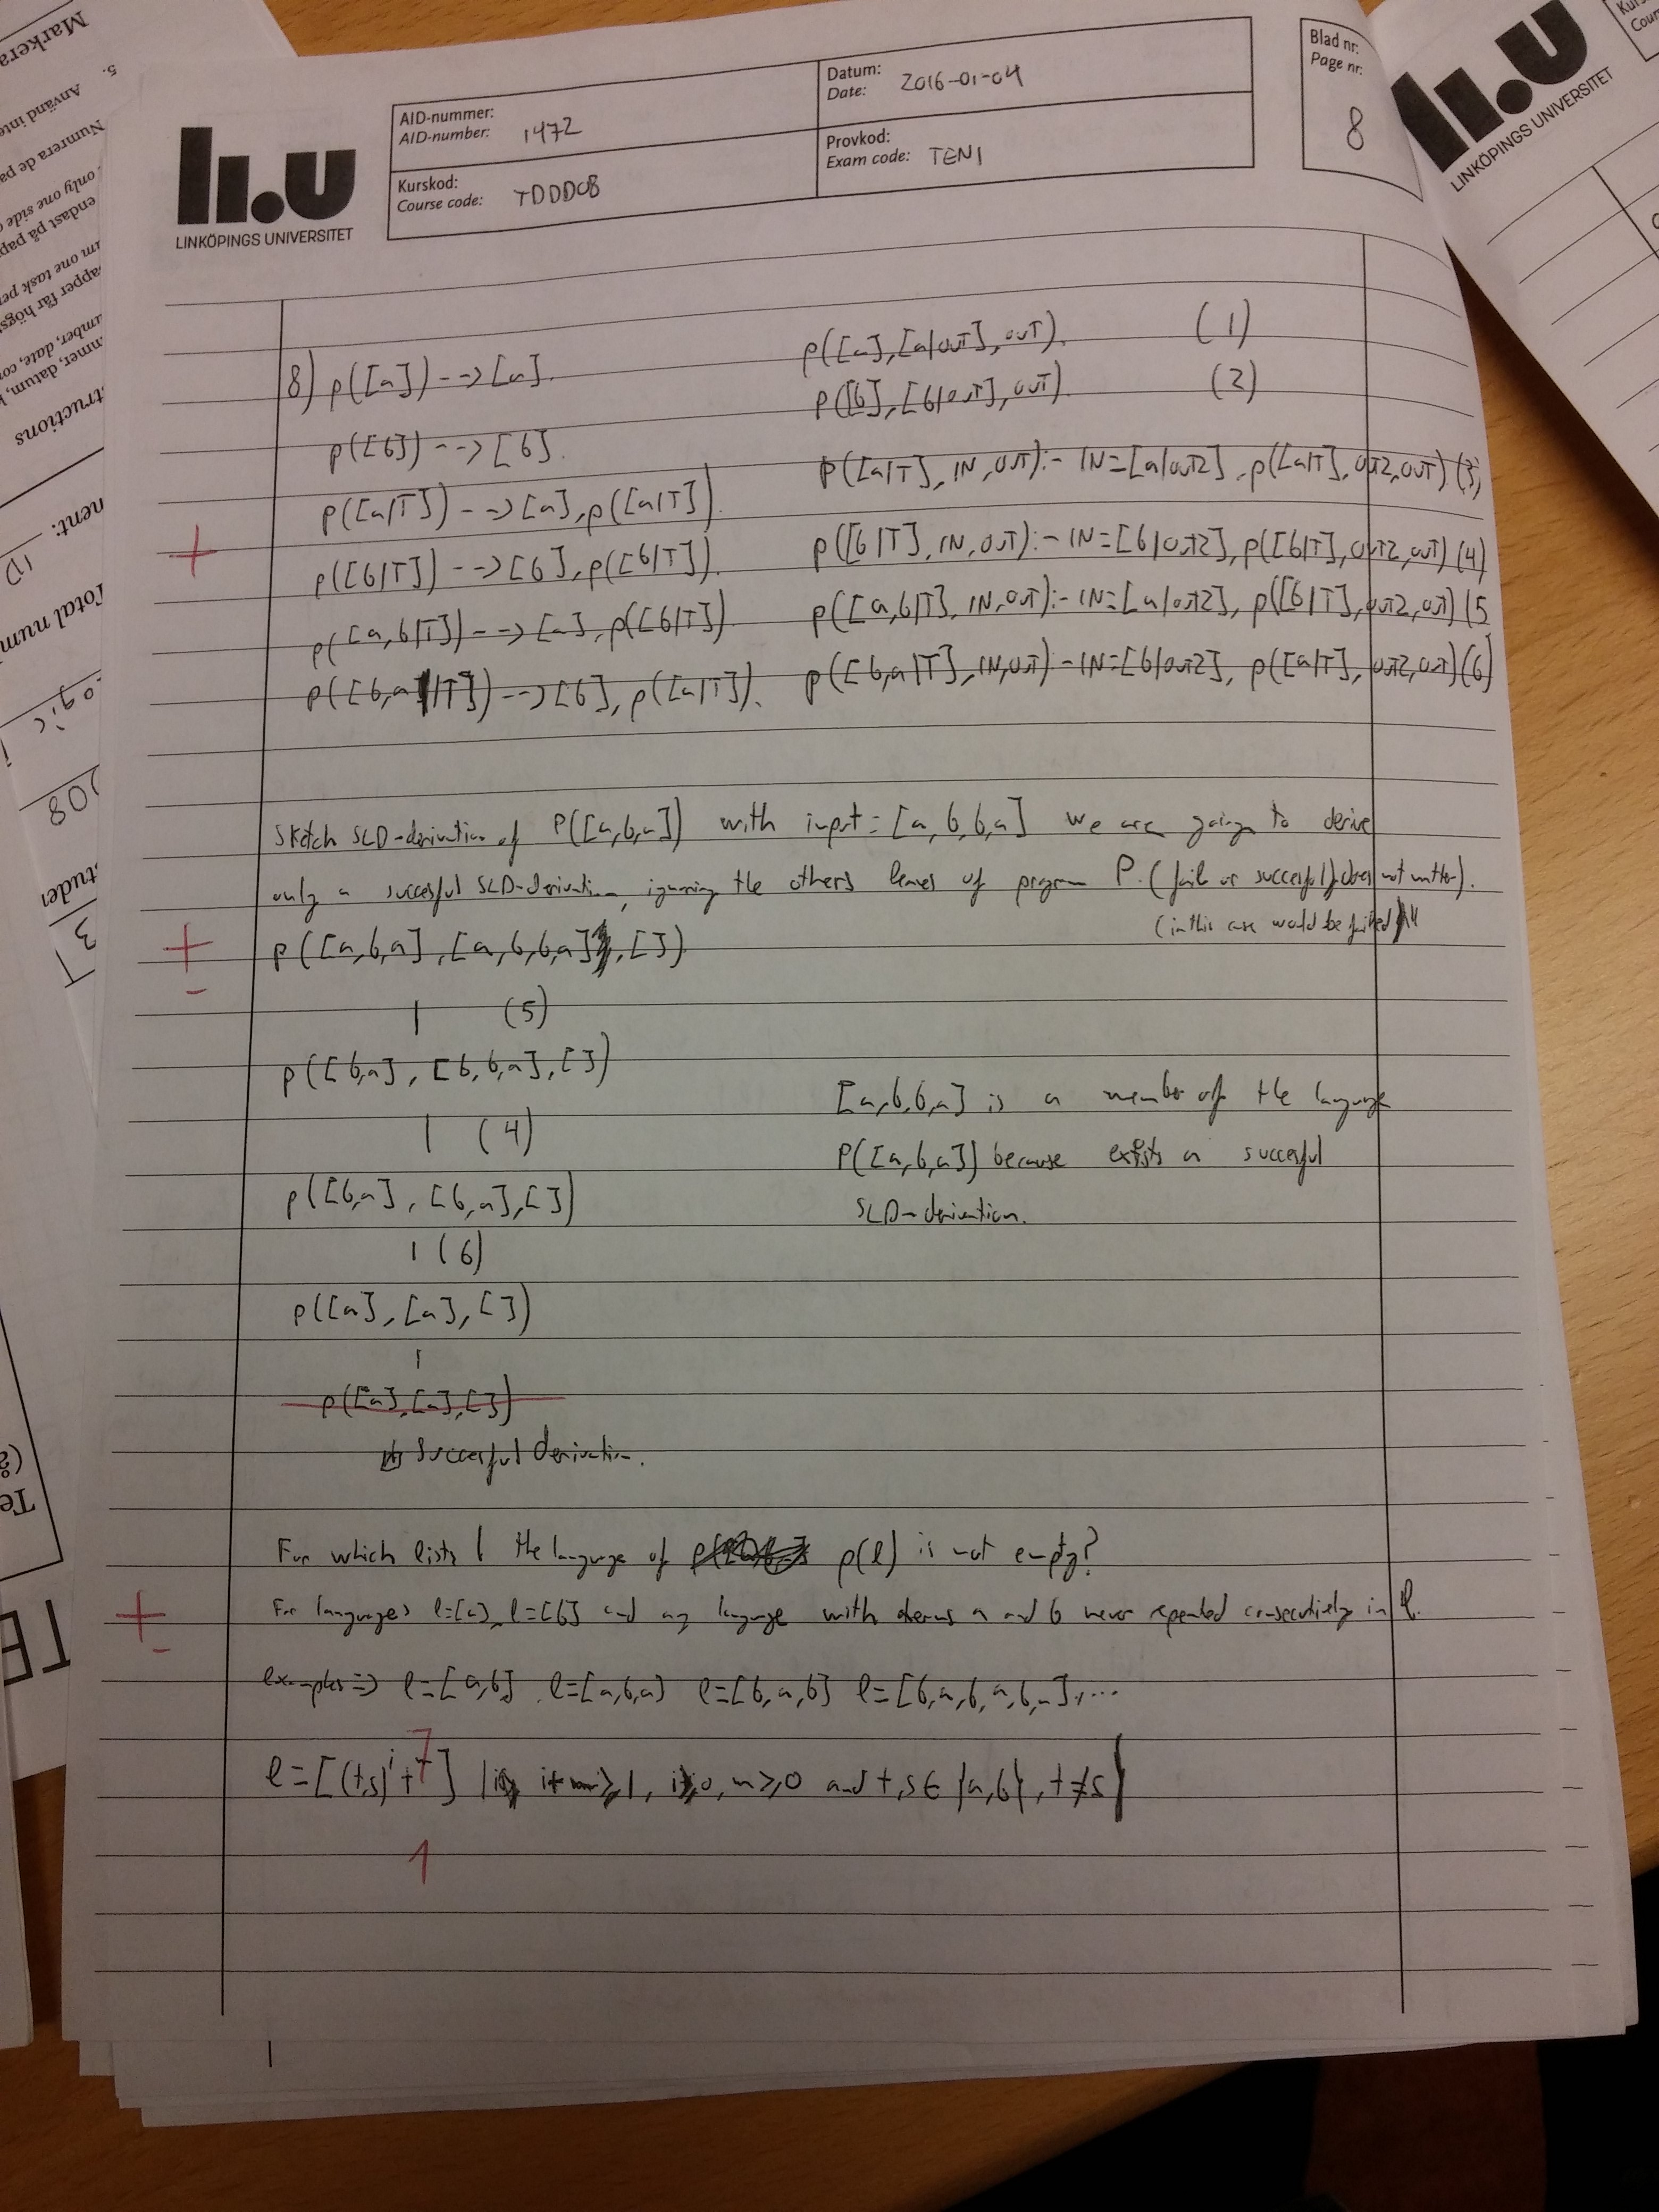 LiU
LINKÖPINGS UNIVERSITET
AID-nummer:
AID-number: 1472
Datum:
Date: 2016-01-04
Kurskod:
Course code: TDDD08
Provkod:
Exam code: TEN1
Blad nr:
Page nr:
8
LINKÖPINGS UNIVERSITET
8) p([a]) --> [a]. p([a],[a|OUT],OUT). (1)
p([b]) --> [b]. p([b],[b|OUT],OUT). (2)
p([a|T]) --> [a],p([a|T]). p([a|T],IN,OUT):-IN=[a|OUT2],p([a|T],OUT2,OUT) (3)
+
p([b|T]) --> [b],p([b|T]). p([b|T],IN,OUT):-IN=[b|OUT2],p([b|T],OUT2,OUT) (4)
p([a,b|T]) --> [a],p([b|T]). p([a,b|T],IN,OUT):-IN=[a|OUT2],p([b|T],OUT2,OUT) (5
p([b,a|T]) --> [b],p([a|T]). p([b,a|T],IN,OUT)-IN=[b|OUT2],p([a|T],OUT2,OUT) (6)
Sketch SLD-derivation of P([a,b,a]) with input=[a,b,b,a] we are going to derive
only a succesful SLD-derivation, ignoring the others leaves of program P. (fail or succesful, does not matter).
(in this case would be failed
+
-
p([a,b,a],[a,b,b,a],[]).
| (5)
p([b,a],[b,b,a],[])
| (4)
p([b,a],[b,a],[])
| (6)
p([a],[a],[])
|
p([a],[a],[])
Succesful derivation.
[a,b,b,a] is a member of the language
P([a,b,a]) because exists a succesful
SLD-derivation.
For which lists l the language of p(l) is not empty?
+
-
For languages l=[a], l=[b] and any language with a and b never repeated consecutively in l.
examples => l=[a,b], l=[a,b,a] l=[b,a,b] l=[b,a,b,a,b,a],...
7
1